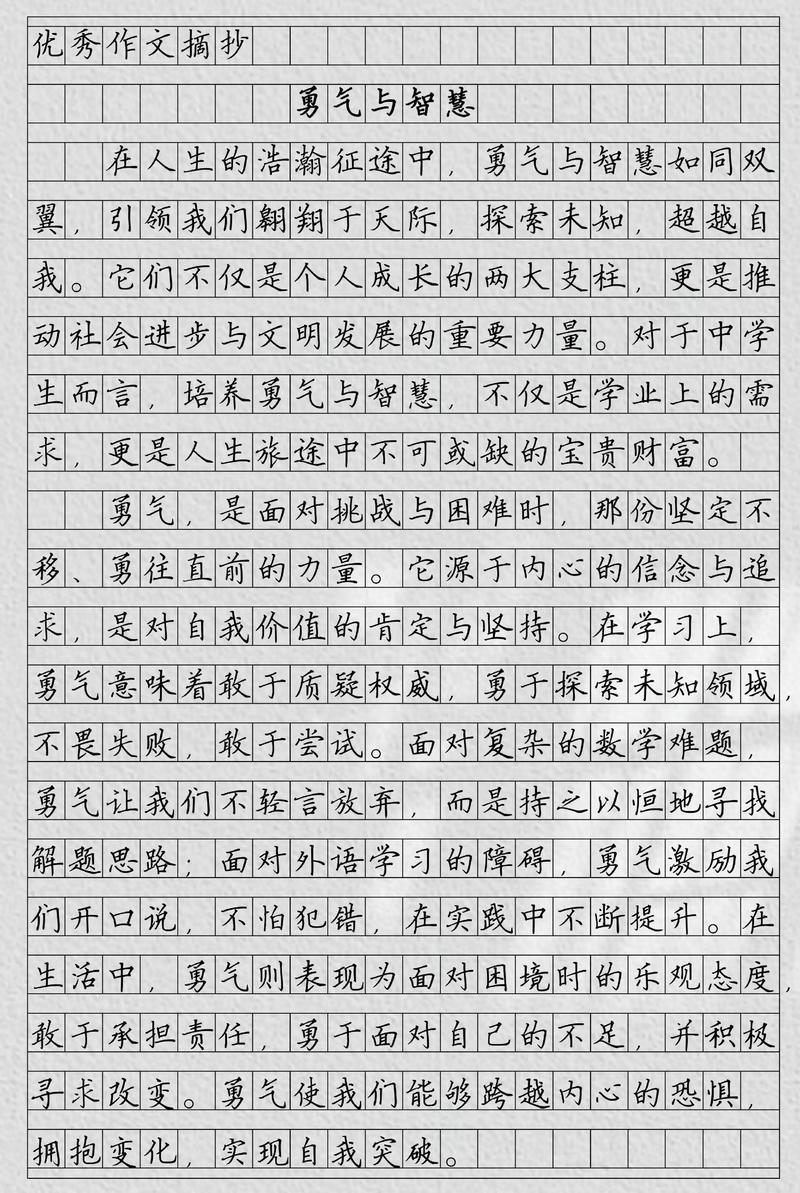 优秀作文摘抄
勇气与智慧
在人生的浩瀚征途中，勇气与智慧如同双
翼，引领我们翱翔于天际，探索未知，超越自
我。它们不仅是个人成长的两大支柱，更是推
动社会进步与文明发展的重要力量。对于中学
生而言，培养勇气与智慧，不仅是学业上的需
求，更是人生旅途中不可或缺的宝贵财富。
勇气，是面对挑战与困难时，那份坚定不
移、勇往直前的力量。它源于内心的信念与追
求，是对自我价值的肯定与坚持。在学习上，
勇气意味着敢于质疑权威，勇于探索未知领域，
不畏失败，敢于尝试。面对复杂的数学难题，
勇气让我们不轻言放弃，而是持之以恒地寻找
解题思路；面对外语学习的障碍，勇气激励我
们开口说，不怕犯错，在实践中不断提升。在
生活中，勇气则表现为面对困境时的乐观态度，
敢于承担责任，勇于面对自己的不足，并积极
寻求改变。勇气使我们能够跨越内心的恐惧，
拥抱变化，实现自我突破。